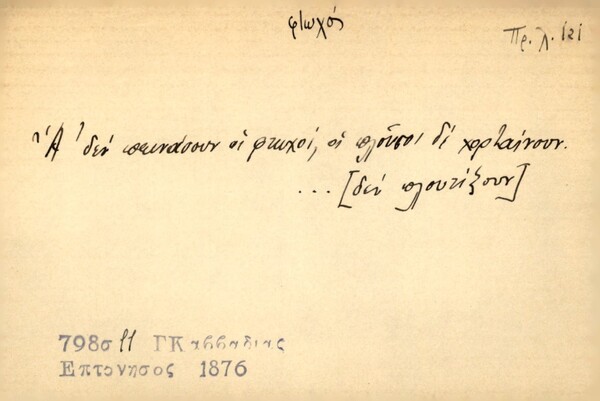 φτωχός
Πρ. λ. 121
Ἀ' δεν πεινάσουν οἱ φτωχοί, οἱ πλούσιοι δὲ χορταίνουν.
... [δεν πλουτίζουν]
798σ 11 ΓΚαββαδιας
Επτονησος 1876